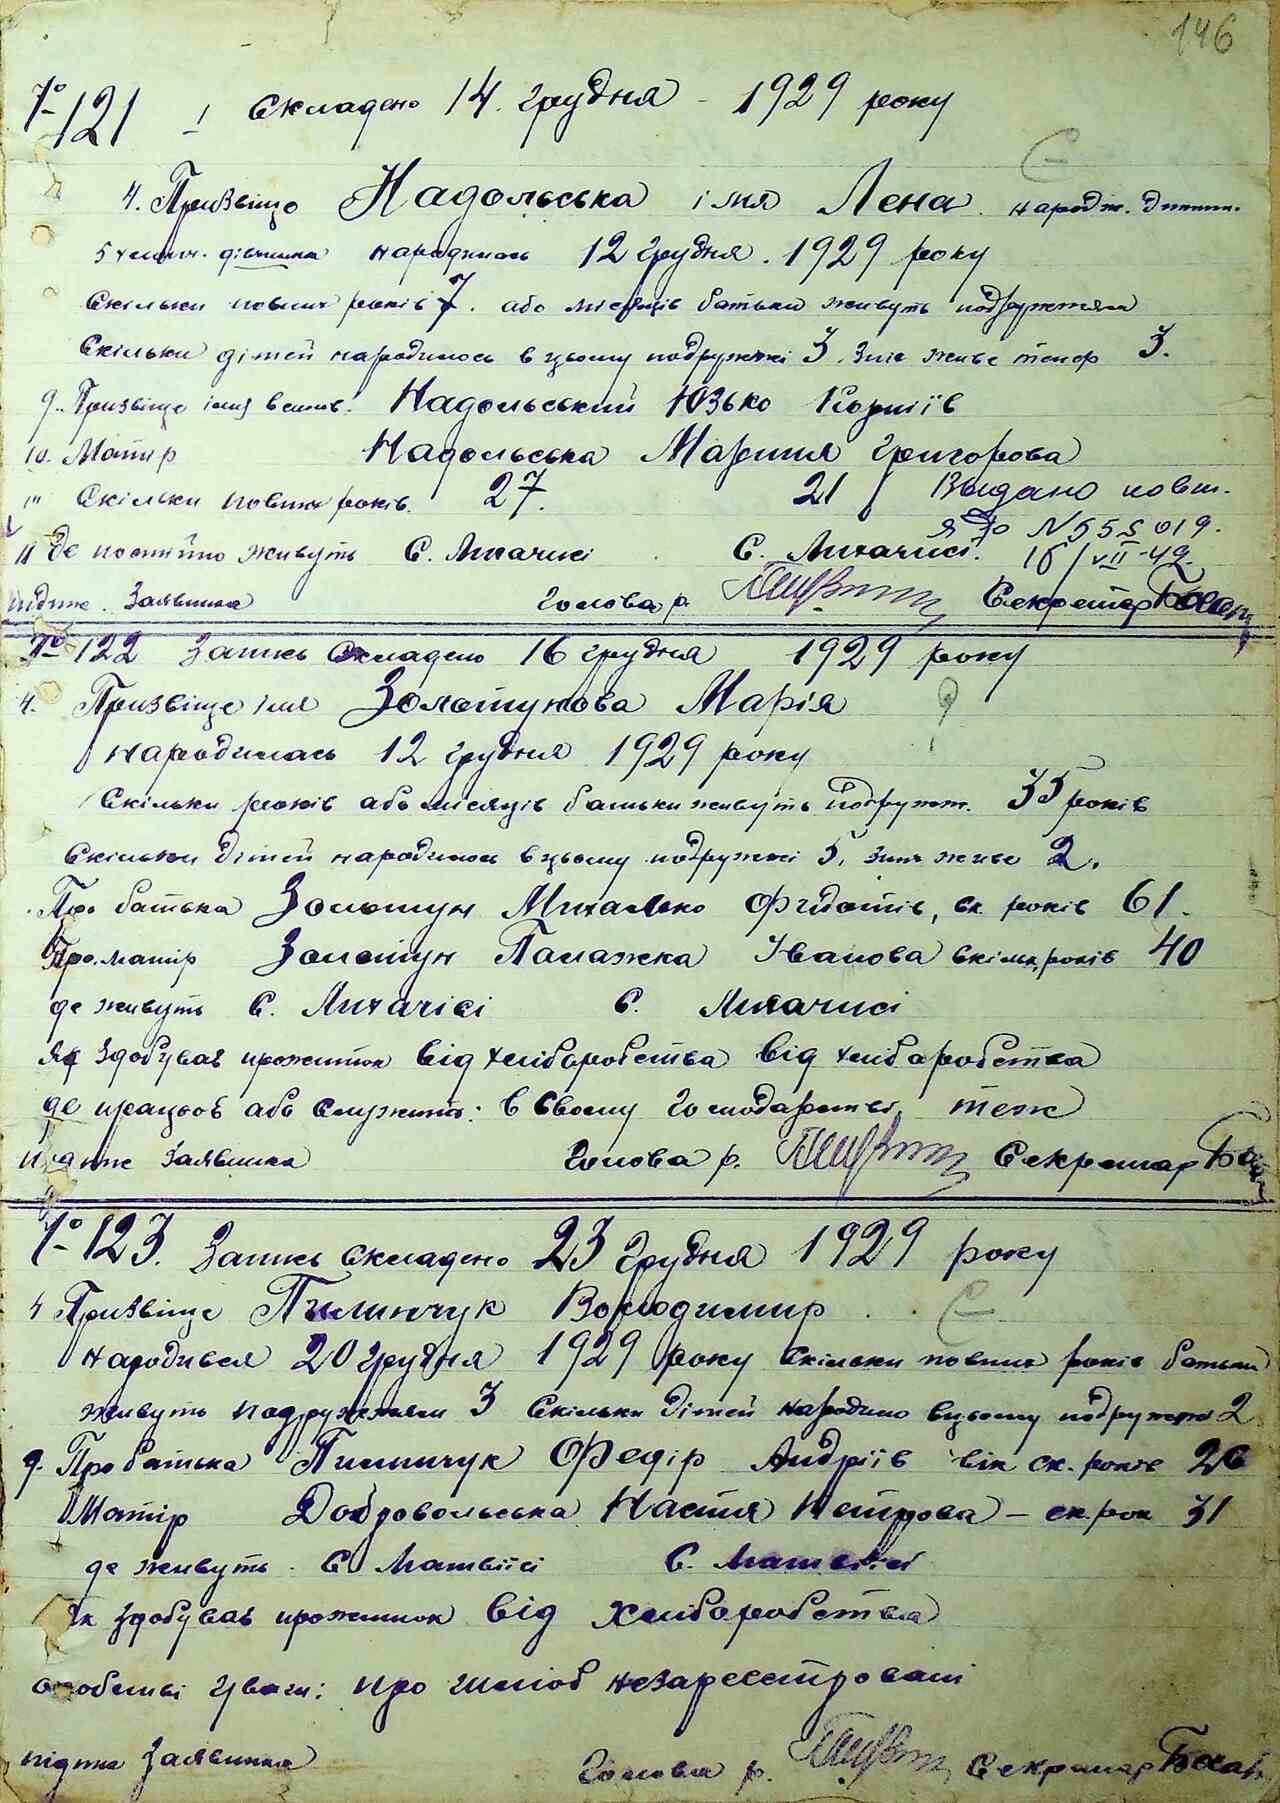 146
№ 121 1 Складено 14 грудня - 1929 року
4. Призвіще Надольська імя Лена народж. дитин.
5 хлопч. дівчинка народилась 12 грудня. 1929 року
Скільки повних років 7. або місяців батьки живуть подружжям
Скільки дітей народилось в цьому подружжі 3. Них живе тепер 3.
9. Призвіще імя Надольський Юзько Корніїв
10. Матір Надольська Марина Григорова
Скільки повних років. 27. 21 Видано повт.
ЯЗО № 555019.
11 Де постійно живуть С. Лихачисі С. Лихачисі. 16/VII-49.
Підпис. Заявника Голова р. Секретар
№ 122 Запись Складено 16 грудня 1929 року
4. Призвіще імя Золотунова Марія
народилась 12 грудня 1929 року
Скільки років або місяців батьки живуть подружж. 35 років
Скільки дітей народилось в цьому подружжі 5, них живе 2.
Про батька Золотун Михалко Фидотів, ск. років 61.
Про матір Золотун Палажка Іванова скільк. років 40
де живуть С. Лихачісі С. Лихачисі
Як здобував прожиток від хліборобства від хліборобства
де працює або служить: в своєму господарстві, теж
Підпис Заявника Голова р. Секретар
№ 123. Запись складено 23 грудня 1929 року
4 Призвіще Пилипчук Володимир
народився 20 грудня 1929 року Скільки повних років батьки
живуть подружжям 3 Скільки дітей народило вцьому подружжі 2
9. Про батька Пилипчук Федір Андріїв вік ск. років 26
Матір Добровольська Настя Петрова - ск. рок 31
де живуть. С Матвіїсі С. Матвіїсі
Як здобував прожиток від хліборобства
особливі уваги: про шлюб незареєстровані
підпис Заявника Голова р. Секретар